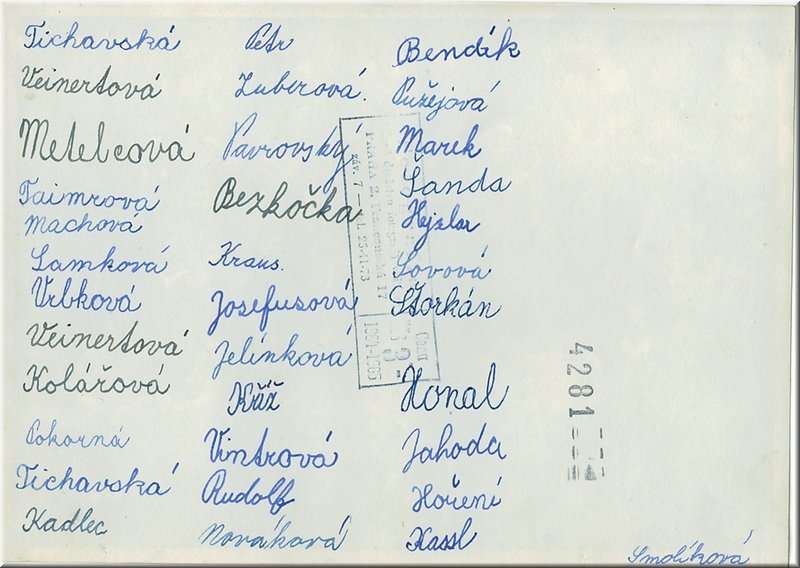 Tichavská
Veinertová
Metelcová
Taimrová
Machová
Samková
Vrbková
Veinertová
Kolářová
Pokorná
Tichavská
Kadlec
Petr
Zuberová.
Pavrovský
Bezkočka
Kraus.
Josefusová
Jelínková
Kříž
Vintrová
Rudolf
Nováková
Bendík
Pužejová
Marek
Šanda
Hejzlar
Sovová
Štorkán
Honal
Jahoda
Hoření
Kassl
Smolíková
PRAHA 2,
17
7
23-41-73
Cena
4281